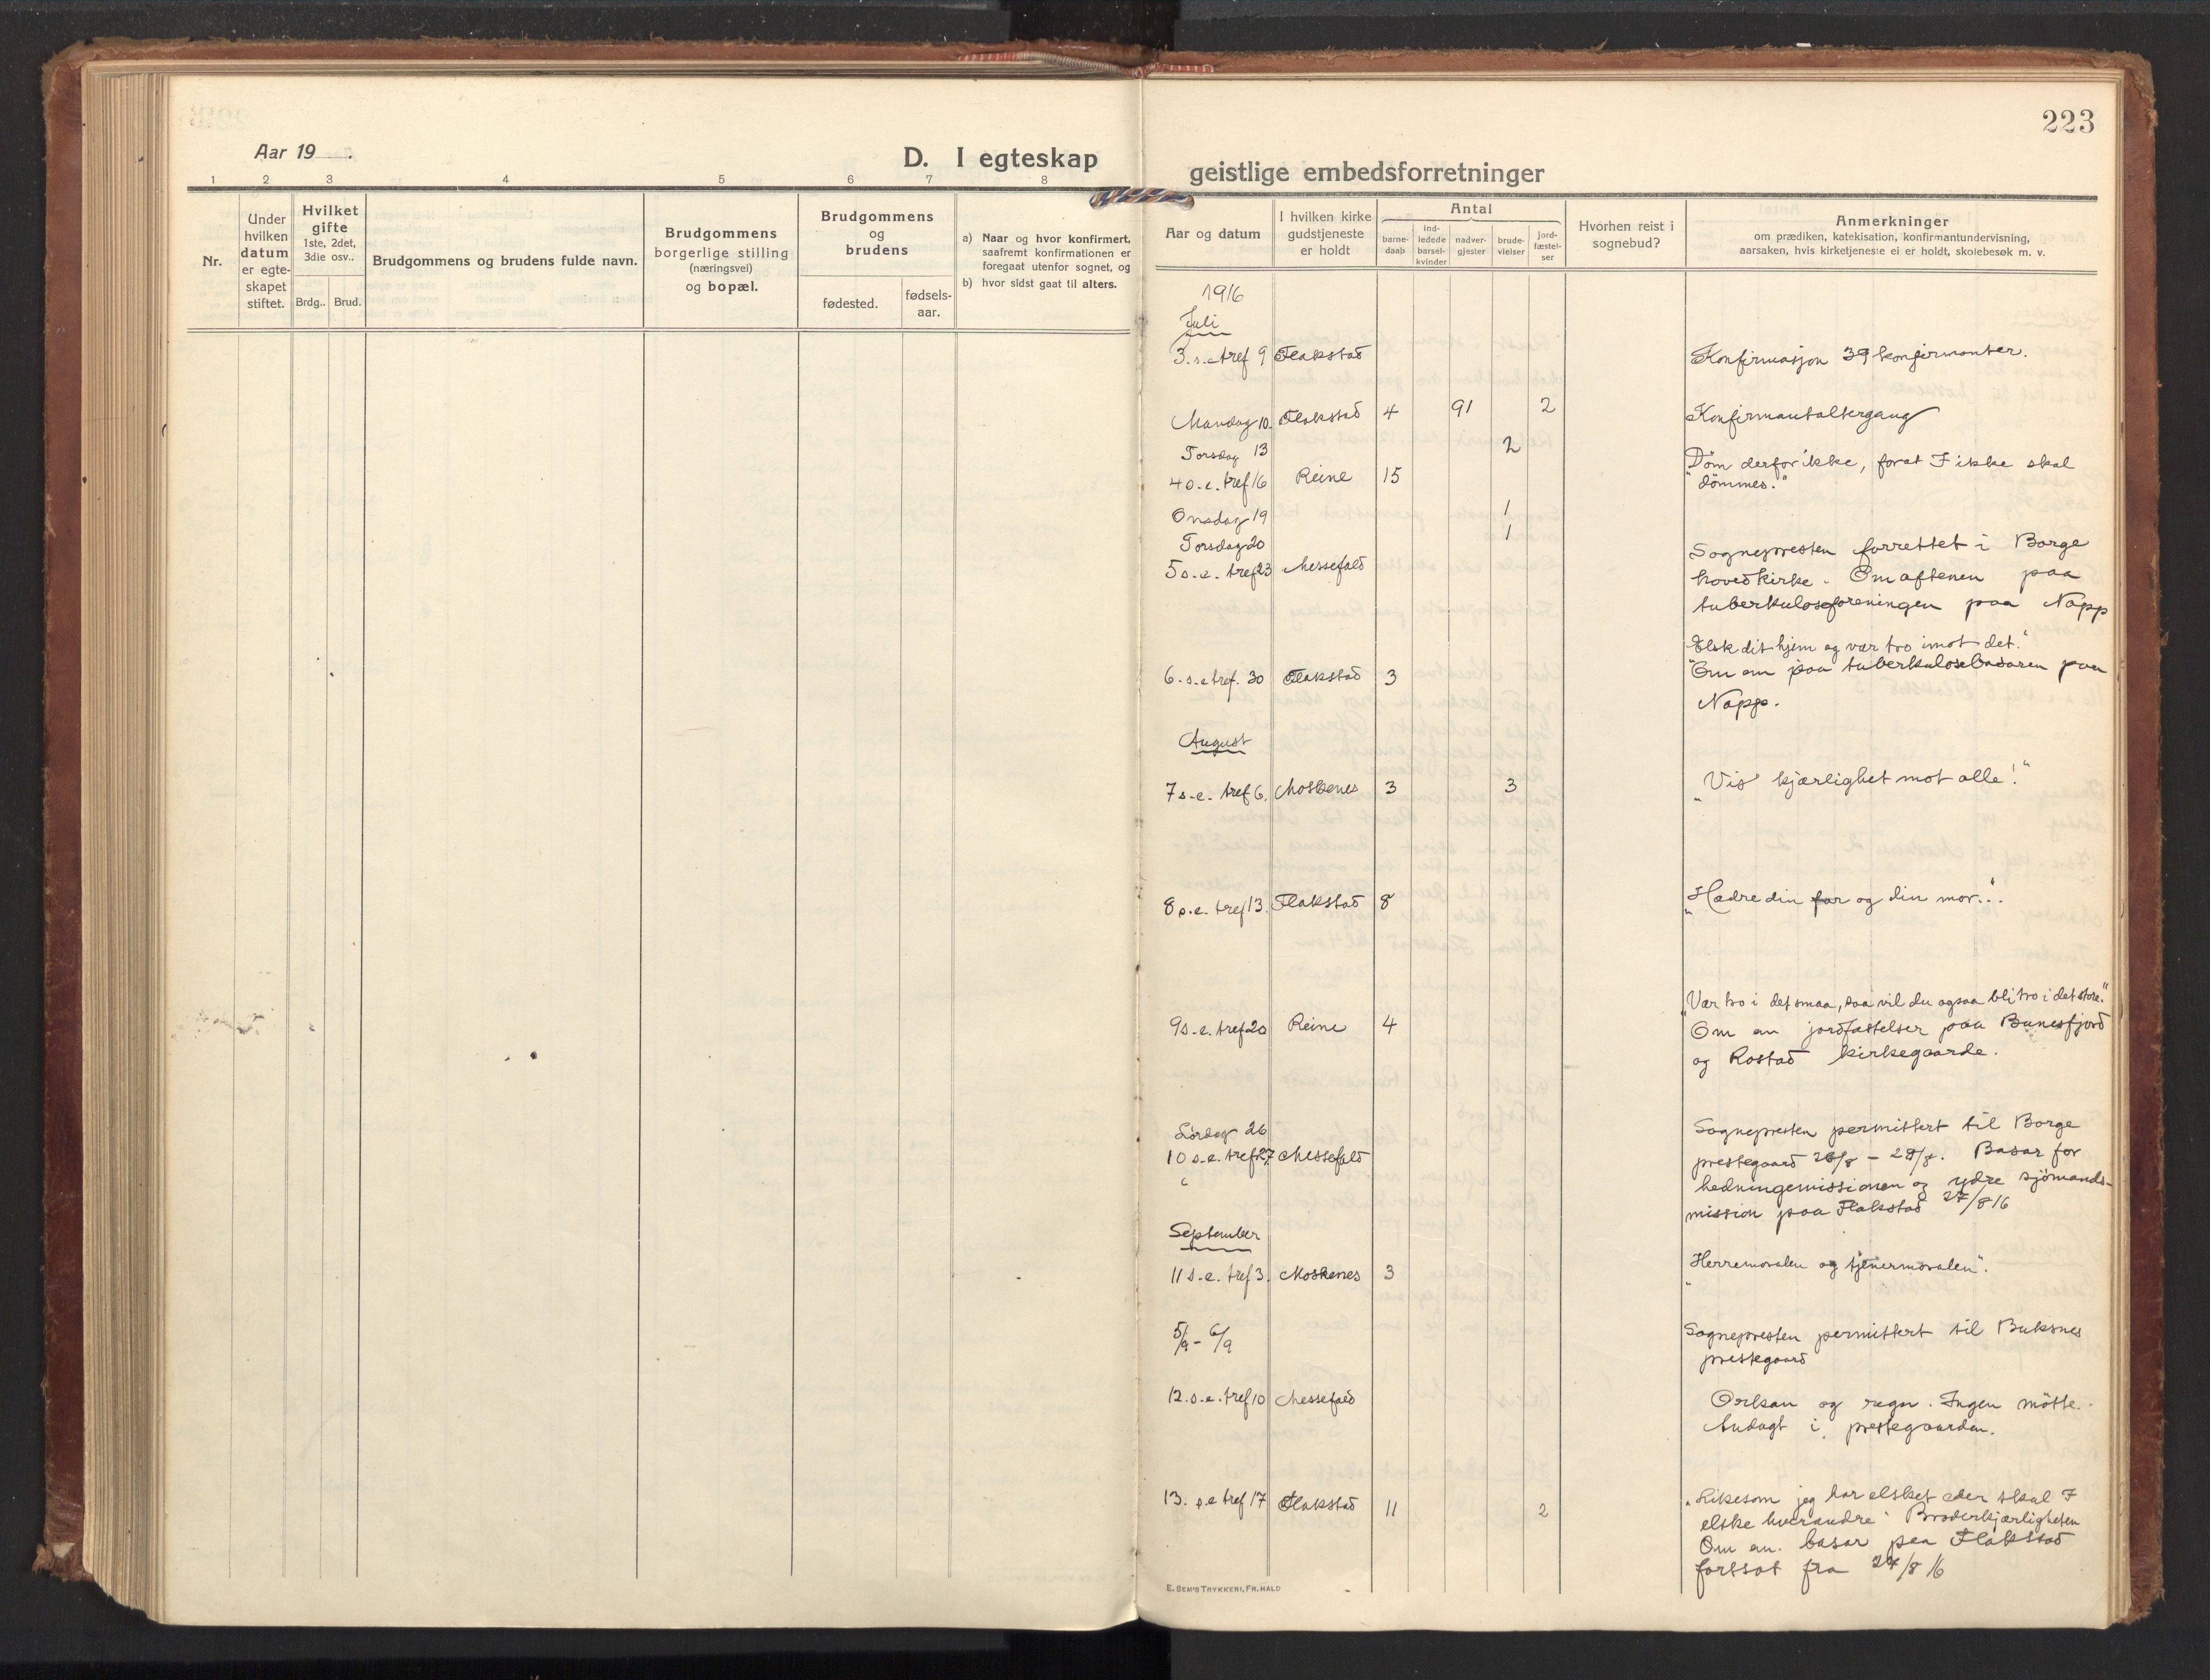 Aar 19 .
D. I egteskap
1 2 3 4 5 6 7 8
Nr.
Under
hvilken
datum
er egte-
skapet
stiftet.
Hvilket
gifte
1ste, 2det,
3die osv..
Brdg.. Brud.
Brudgommens og brudens fulde navn.
Brudgommens
borgerlige stilling
(næringsvei)
og bopæl.
Brudgommens
og
brudens
fødested.
fødsels-
aar.
a) Naar og hvor konfirmert,
saafremt konfirmationen er
foregaat utenfor sognet, og
b) hvor sidst gaat til alters.
223
geistlige embedsforretninger
Aar og datum
I hvilken kirke
gudstjeneste
er holdt
Antal
barne-
daab
ind-
ledede
barsel-
kvinder
nadver-
gjester
brude-
vielser
jord-
fæstel-
ser
Hvorhen reist i
sognebud?
Anmerkninger
om prædiken, katekisation, konfirmantundervisning,
aarsaken, hvis kirketjeneste ei er holdt, skolebesøk m. v.
1916
Juli
3. s. e tref 9 Flakstad Konfirmasjon 39 konfirmanter.
Mandag 10. Flakstad 4 91 2 Konfirmantaltergang
Torsdag 13 2
4 s. e. tref 16 Reine 15 "Döm derfor ikke, forat I ikke skal
dömmes."
Onsdag 19 1
Torsdag 20 1
5 s. e. tref 23 Messefald Sognepresten forrettet i Borge
hovedkirke. Om aftenen paa
tuberkuloseforeningen paa Napp
6. s. e tref. 30 Flakstad 3 "Elsk dit hjem og vær tro imot det."
Om em paa tuberkulosebasaren paa
Napp.
August
7 s. e. tref 6. Moskenes 3 3 "Vis kjærlighet mot alle!"
8 s. e. tref 13. Flakstad 8 "Hædre din far og din mor..."
9 s. e. tref 20 Reine 4 "Vær tro i det smaa, saa vil du ogsaa bli tro i det store."
Om em jordfæstelser paa Bunesfjord
og Rostad kirkegaarde.
Lördag 26
10 s. e. tref 27 Messefald Sognepresten permittert til Borge
prestegaard 26/8 - 28/8. Basar for
hedningemissionen og ydre sjömands-
mission paa Flakstad 27/8 16
September
11 s. e. tref 3. Moskenes 3 "Herremoralen og tjenermoralen".
5/9 - 6/9 Sognepresten permittert til Buksnes
prestegaard
12. s. e. tref 10 Messefald Orkan og regn. Ingen mötte.
Andagt i prestegaarden.
13. s e tref 17 Flakstad 11 2 "Likesom jeg har elsket eder skal I
elske hverandre" Broderkjærligheten
Om em. basar paa Flakstad
fortsat fra 27/8 16
E. SEM'S TRYKKERI, FR.HALD